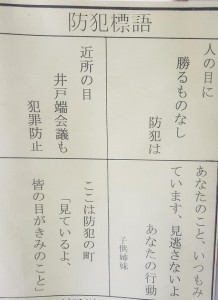 防犯標語
人の目に
勝るものなし
防犯は
近所の目
井戸端会議も
犯罪防止
あなたのこと、いつもみ
ています、見逃さないよ
あなたの行動
子供姉妹
ここは防犯の町
「見ているよ、
皆の目がきみのこと」